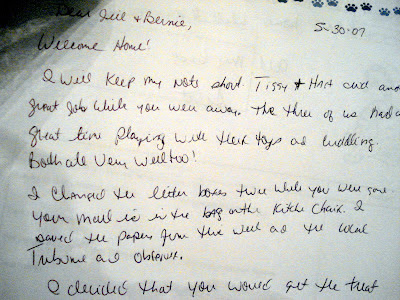 Dear Jill & Bernie,
5-30-07
Welcome Home!
I will keep my note short. Tissy & Hart did another
great job while you were away. The three of us had a
great time playing with their toys and cuddling.
Both ate very well too!
I changed the litter boxes twice while you were gone.
Your mail is in the bag on the kitchen chair. I
saved the papers from this week and the local
Tribune and Observer.
I decided that you would get the treat